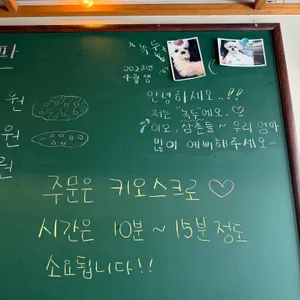 파
* 녹두 *
2023년
4월생
안녕하세요..!!
원
저는 "녹두"에요. ♡
이모. 삼촌들~ 우리 엄마
원
많이 예뻐해주세요~
원
주문은 키오스크로 ♡
시간은 10분 ~ 15분 정도
소요됩니다!!